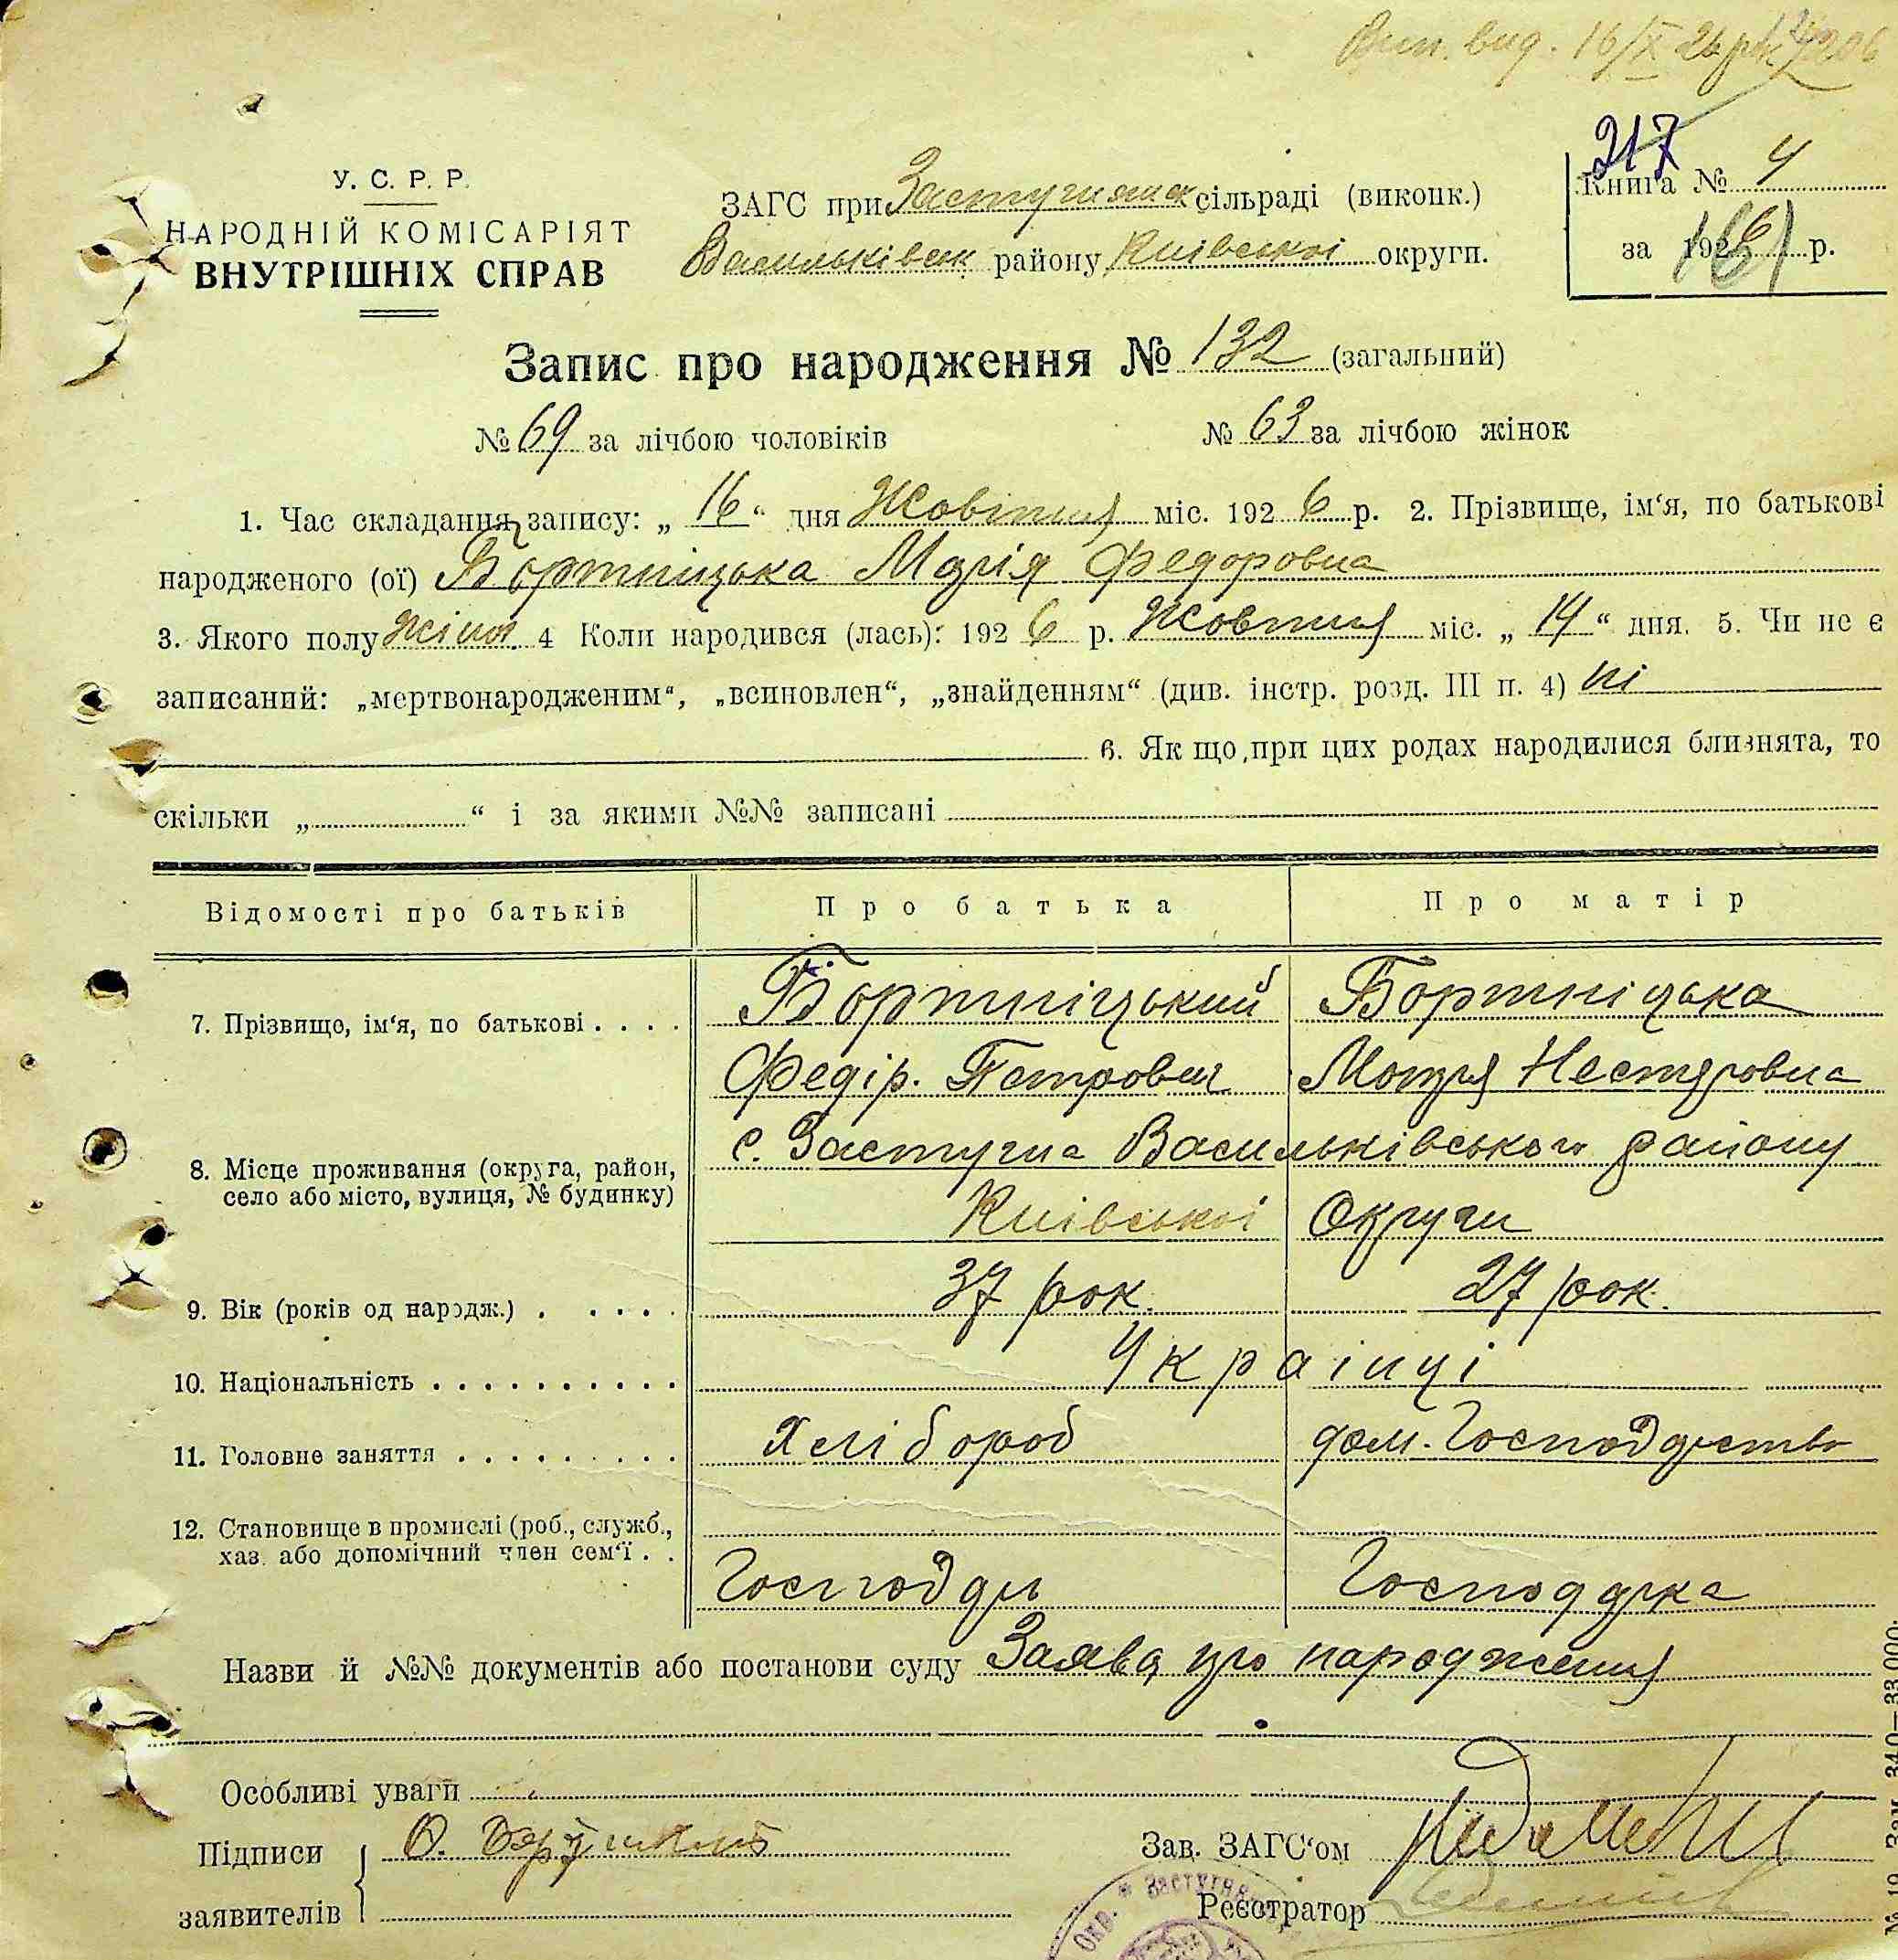 Вип. вид. 16/X 26 р.
217
У. С. Р. Р.
НАРОДНІЙ КОМІСАРІЯТ
ВНУТРІШНІХ СПРАВ
ЗАГС при Застугнянск сільраді (виконк.)
Васильківськ району Київської округи.
Книга № 4
за 1926 р.
161
Запис про народження № 132 (загальний)
№ 69 за лічбою чоловіків № 63 за лічбою жінок
1. Час складання запису: „ 16 “ дня Жовтня міс. 192 6 р. 2. Прізвище, ім‘я, по батькові
народженого (ої) Бортніцька Марія Федоровна
3. Якого полу жіноч. 4 Коли народився (лась): 192 6 р. Жовтня міс. „ 14 “ дня. 5. Чи не є
записаний: „мертвонародженим“, „всиновлен“, „знайденням“ (див. інстр. розд. III п. 4) ні
6. Як що при цих родах народилися близнята, то
скільки „ “ і за якими №№ записані
Відомості про батьків Про батька Про матір
7. Прізвище, ім‘я, по батькові . . . . Бортніцький Бортніцька
Федір. Петрович Мотря Нестеровна
8. Місце проживання (округа, район, с. Застугна Васильківського району
село або місто, вулиця, № будинку)
Київської Округи
9. Вік (років од народж.) . . . . . 37 рок. 27 рок.
10. Національність . . . . . . . . . . Українці
11. Головне заняття . . . . . . . . . Хлібороб дом. Господарство
12. Становище в промислі (роб., служб.,
хаз. або допомічний член сем‘ї . . Господарь Господарка
Назви й №№ документів або постанови суду Заява про народження
Особливі уваги
Підписи
заявителів
О.
Зав. ЗАГС‘ом
Реєстратор
ОКР. * Застугня
№ 19. Зам. 340—33.000.